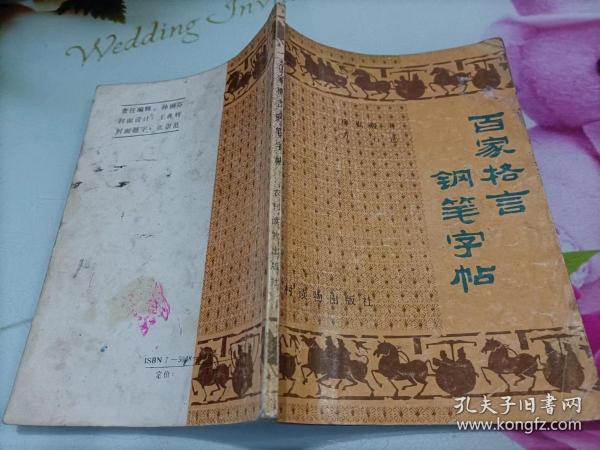 Wedding Invi
责任编辑:孙桐芬
封面设计:王兆祥
封面题字:
ISBN 7—50
定价:
百家格言钢笔字帖
农村读物出版社
百家格言
钢笔字帖
村读物出版社
孔夫子旧书网
www.kongfz.com